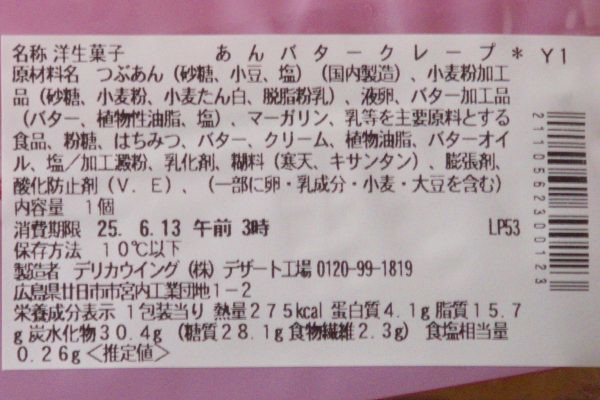 名称 洋生菓子　あんバタークレープ＊ Y1
原材料名 つぶあん（砂糖、小豆、塩）（国内製造）、小麦粉加工
品（砂糖、小麦粉、小麦たん白、脱脂粉乳）、液卵、バター加工品
（バター、植物性油脂、塩）、マーガリン、乳等を主要原料とする
食品、粉糖、はちみつ、バター、クリーム、植物油脂、バターオイ
ル、塩／加工澱粉、乳化剤、糊料（寒天、キサンタン）、膨張剤、
酸化防止剤（V．E）、（一部に卵・乳成分・小麦・大豆を含む）
内容量 1個
消費期限 25. 6.13 午前 3時 LP53
保存方法 10℃以下
製造者 デリカウイング（株）デザート工場 0120-99-1819
広島県廿日市市宮内工業団地1-2
栄養成分表示 1包装当り 熱量275kcal 蛋白質4.1g 脂質15.7
g 炭水化物30.4g（糖質28.1g 食物繊維2.3g） 食塩相当量
0.26g＜推定値＞
2110562300123